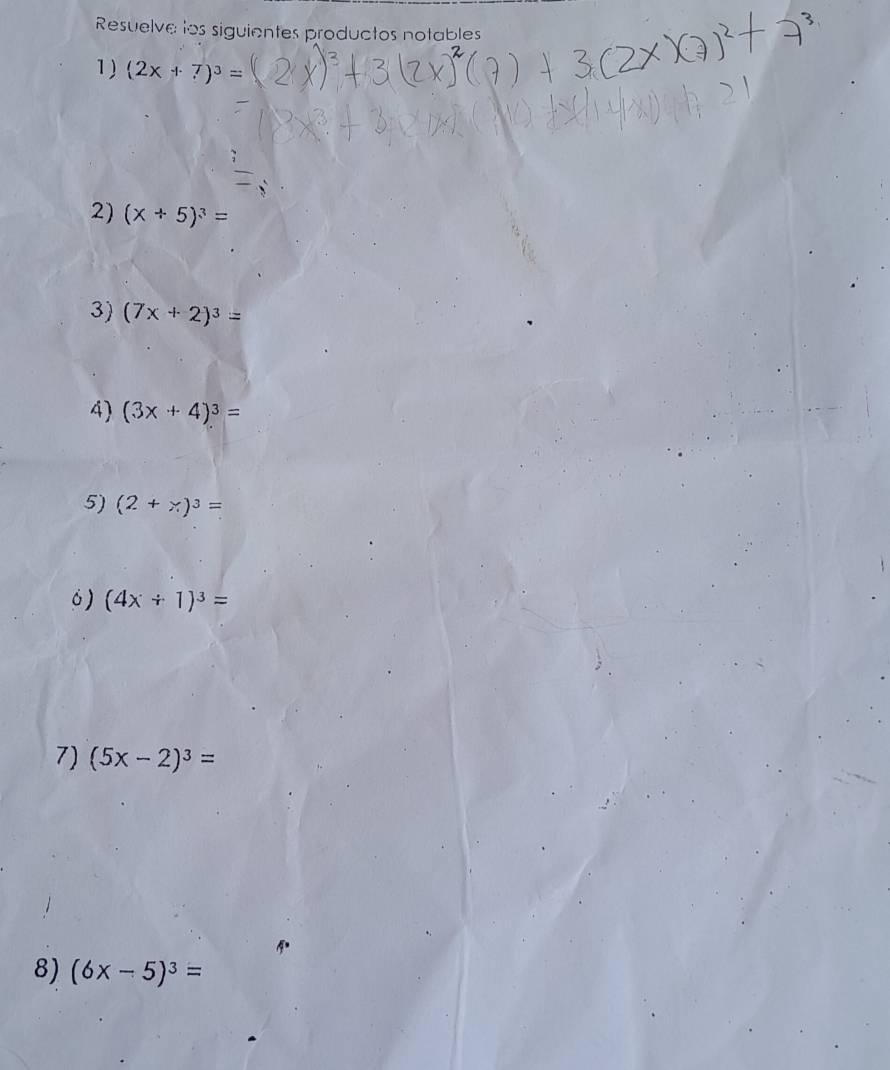 Resuelve los siguientes productos notables
1) (2x + 7)³ = (2x)³ + 3(2x)²(7) + 3(2x)(7)² + 7³
=
=
2) (x + 5)³ =
3) (7x + 2)³ =
4) (3x + 4)³ =
5) (2 + x)³ =
6) (4x + 1)³ =
7) (5x - 2)³ =
8) (6x - 5)³ =